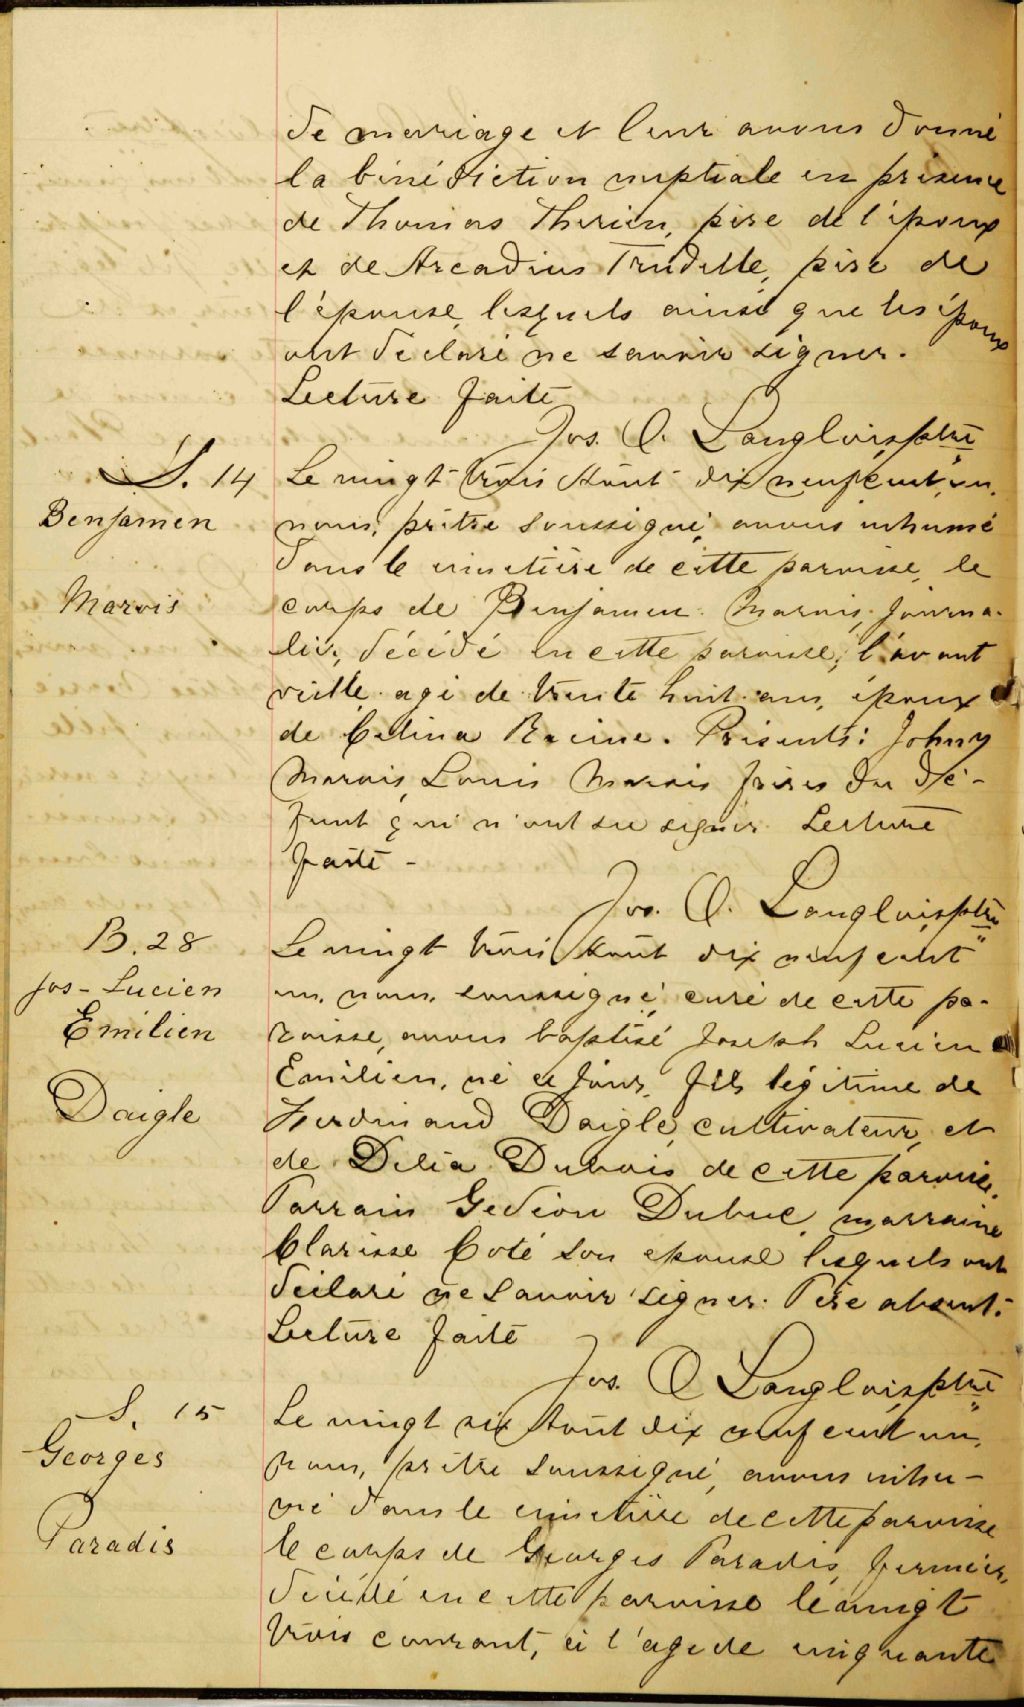 de mariage et leur avons donné
la bénédiction nuptiale en présence
de Thomas Therien, père de l'époux
et de Arcadius Trudelle, père de
l'épouse, lesquels ainsi que les époux
ont déclaré ne savoir signer.
Lecture faite
Jos. O. Langlois, ptre
S. 14
Benjamen
Marois
Le vingt trois Août dix neuf cent un,
nous, prêtre soussigné, avons inhumé
dans le cimetière de cette paroisse, le
corps de Benjamen Marois, journa-
lier, décédé en cette paroisse, l'avant
veille, agé de trente huit ans, époux
de Celina Racine. Présents: Johny
Marois, Louis Marois frères du dé-
funt qui n'ont su signer. Lecture
faite -
Jos. O. Langlois, ptre
B. 28
Jos - Lucien
Emilien
Daigle
Le vingt trois Août dix neuf cent
un, nous, soussigné, curé de cette pa-
roisse, avons baptisé Joseph Lucien
Emilien, né ce jour, fils légitime de
Ferdinand Daigle, cultivateur, et
de Délia Dubois de cette paroisse.
Parrain Gedéon Dubuc, marraine
Clarisse Coté son epouse lesquels ont
déclaré ne savoir signer. Père absent.
Lecture faite
Jos. O Langlois, ptre
S. 15
Georges
Paradis
Le vingt six Août dix neuf cent un,
nous, prêtre soussigné, avons inhu-
mé dans le cimetière de cette paroisse
le corps de Georges Paradis, fermier,
décédé en cette paroisse le vingt
trois courant, à l'age de cinquante